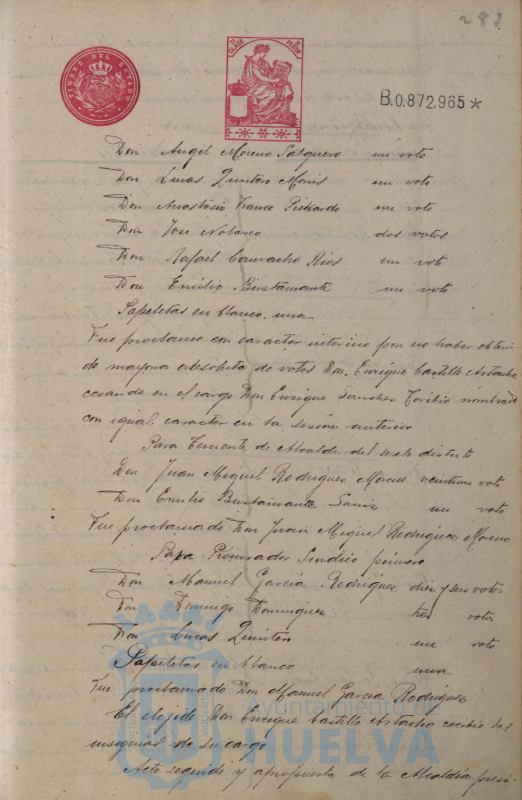 282
TIMBRE DEL ESTADO
B.0.872,965*
Don Angel Moreno Salguero un voto
Don Lucas Quintero Monis un voto
Don Anastasio Franco Pichardo un voto
Don Jose Nolasco dos votos
Don Rafael Camacho Rios un voto
Don Emilio Bustamante un voto
Papeletas en blanco una
Fue proclamo con caracter interino por no haber obteni-
do mayoria absoluta de votos Don Enrique Castillo Astacho,
cesando en el cargo Don Enrique Sanchez Toribio nombrado
con igual caracter en la sesión anterior
Para Teniente de Alcalde del sexto distrito
Don Juan Miguel Rodriguez Moreno veintiun voto
Don Emilio Bustamante un voto
Fue proclamado Don Juan Miguel Rodriguez Moreno
Para Procurador Sindico primero
Don Manuel Garcia Rodriguez diez y seis votos
Don Domingo Dominguez tres votos
Don Lucas Quintero un voto
Papeletas en blanco una
Fue proclamado Don Manuel Garcia Rodriguez
El elejido Don Enrique Castillo Astacho recibio las
insignias de su cargo
Acto seguido y apropuesta de la Alcaldia presi-
Ayuntamiento de
HUELVA